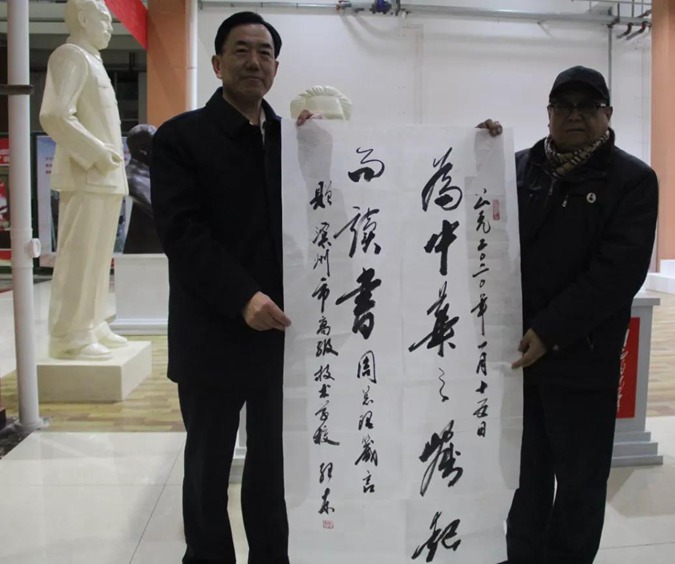 公元二〇二〇年一月十五日
為中華之崛起
而讀書
周总理箴言
赠 州市高级技术学校